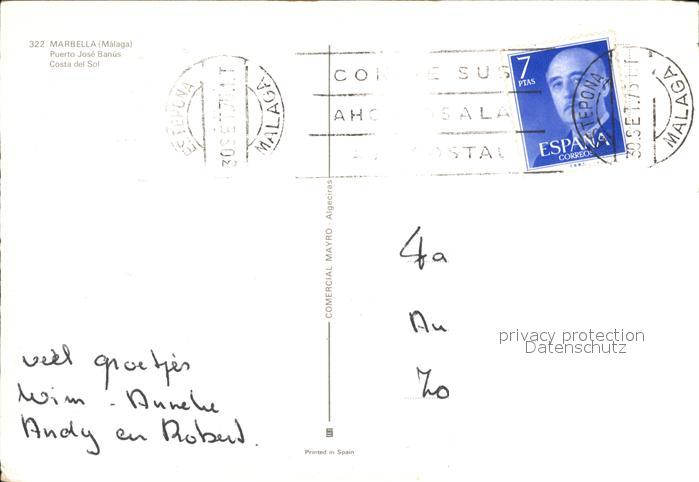 322 MARBELLA (Málaga)
Puerto José Banús
Costa del Sol
ESTEPONA
30 SET. 75
MALAGA
SUS
7
PTAS
ESPAÑA
CORREOS
ESTEPONA
30 SET. 75
MALAGA
COMERCIAL MAYRO - Algeciras
Fa
Au
Zo
privacy protection
Datenschutz
veel groetjes
Wim - Anneke
Andy en Robert.
Printed in Spain